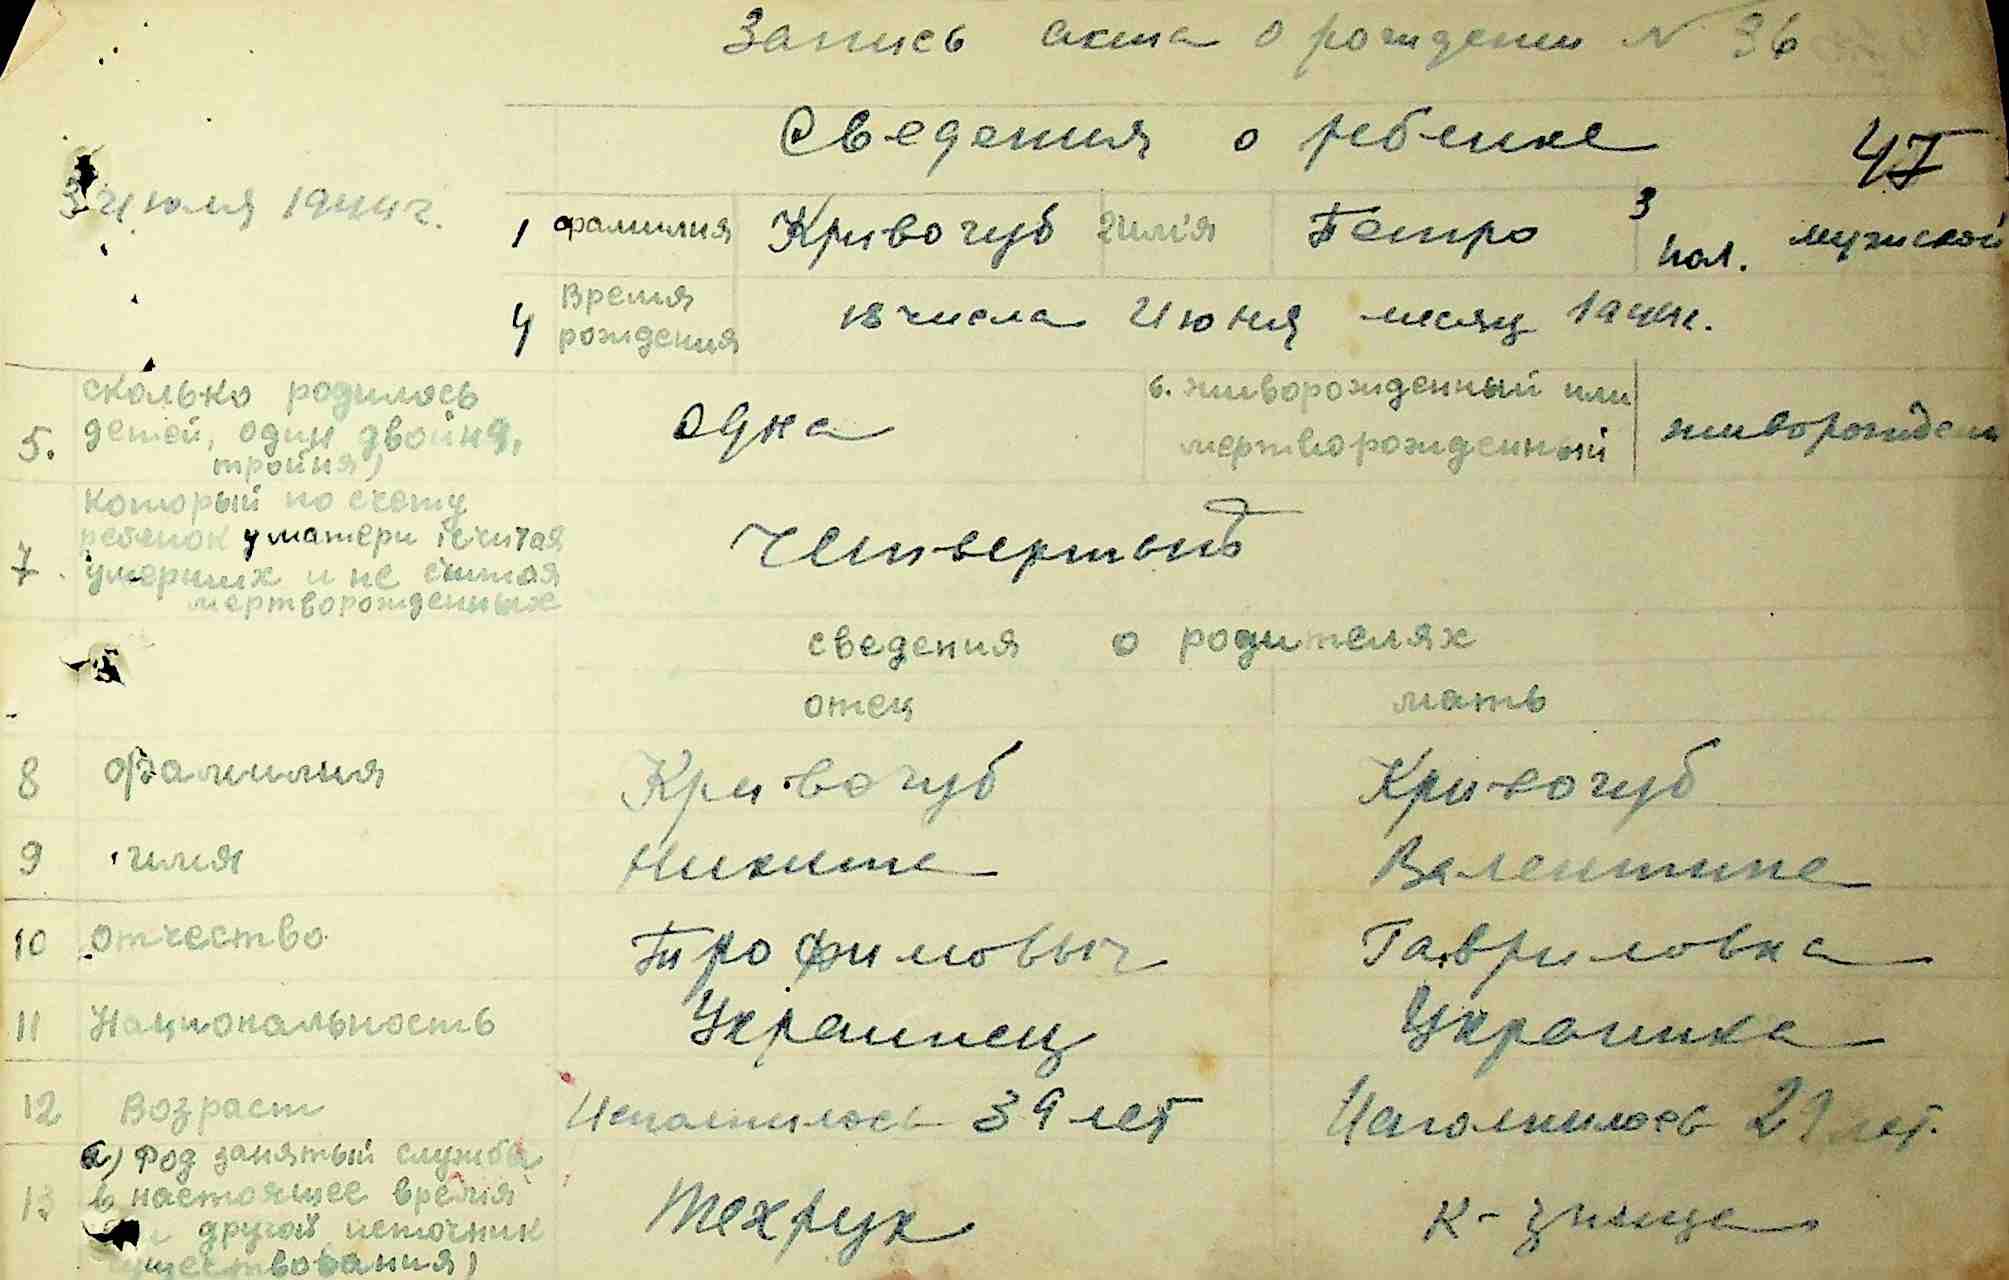 Запись акта о рождении N 36
Сведения о ребенке 47
3 июля 1944 г.
1 фамилия Кривогуб 2 имя Петро 3 пол. мужской
4 Время рождения 18 числа Июня месяц 1944 г.
5. сколько родилось
детей, один двойня,
тройня) одна
6. живорожденный или
мертворожденный живорожден
7. Который по счету
ребенок у матери (считая
умерших и не считая
мертворожденных Четвертый
сведения о родителях
отец мать
8 фамилия Кривогуб Кривогуб
9 имя Никита Валентина
10 отчество Трофимовыч Гавриловна
11 Национальность Украинец Украинка
12 Возраст Исполнилось 39 лет Исполнилось 29 лет.
13 а) Род занятый служба
в настоящее время
другой источник
существования) Техрук К-